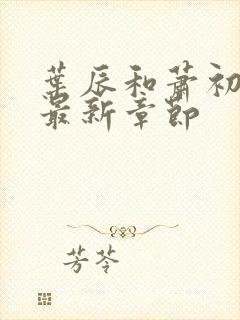 葉辰和蕭初
最新章節
芳苓